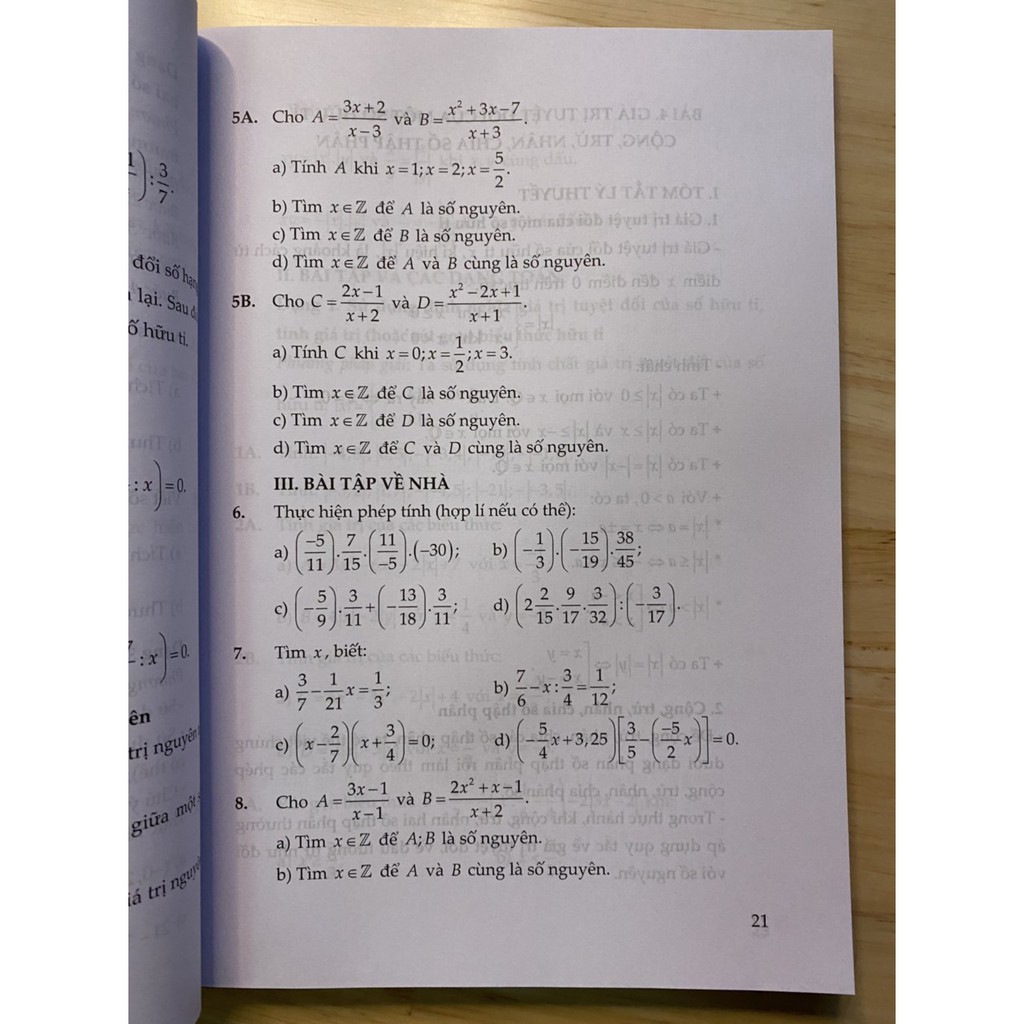 5A. Cho A = (3x+2)/(x−3) và B = (x²+3x−7)/(x+3).
a) Tính A khi x = 1; x = 2; x = 5/2.
b) Tìm x ∈ ℤ để A là số nguyên.
c) Tìm x ∈ ℤ để B là số nguyên.
d) Tìm x ∈ ℤ để A và B cùng là số nguyên.
5B. Cho C = (2x−1)/(x+2) và D = (x²−2x+1)/(x+1).
a) Tính C khi x = 0; x = 1/2; x = 3.
b) Tìm x ∈ ℤ để C là số nguyên.
c) Tìm x ∈ ℤ để D là số nguyên.
d) Tìm x ∈ ℤ để C và D cùng là số nguyên.
III. BÀI TẬP VỀ NHÀ
6. Thực hiện phép tính (hợp lí nếu có thể):
a) (−5/11).7/15.(11/−5).(−30); b) (−1/3).(−15/19).38/45;
c) (−5/9).3/11+(−13/18).3/11; d) (2 2/15.9/17.3/32):(−3/17).
7. Tìm x, biết:
a) 3/7 − 1/21 x = 1/3; b) 7/6 − x : 3/4 = 1/12;
c) (x − 2/7)(x + 3/4) = 0; d) (−5/4 x + 3,25)[3/5 − (−5/2 x)] = 0.
8. Cho A = (3x−1)/(x−1) và B = (2x²+x−1)/(x+2).
a) Tìm x ∈ ℤ để A; B là số nguyên.
b) Tìm x ∈ ℤ để A và B cùng là số nguyên.
21
) : 3/7.
đổi số hạn
lại. Sau đ
ố hữu tỉ.
: x) = 0.
: x) = 0.
ên
trị nguyên
giữa một
iá trị nguy